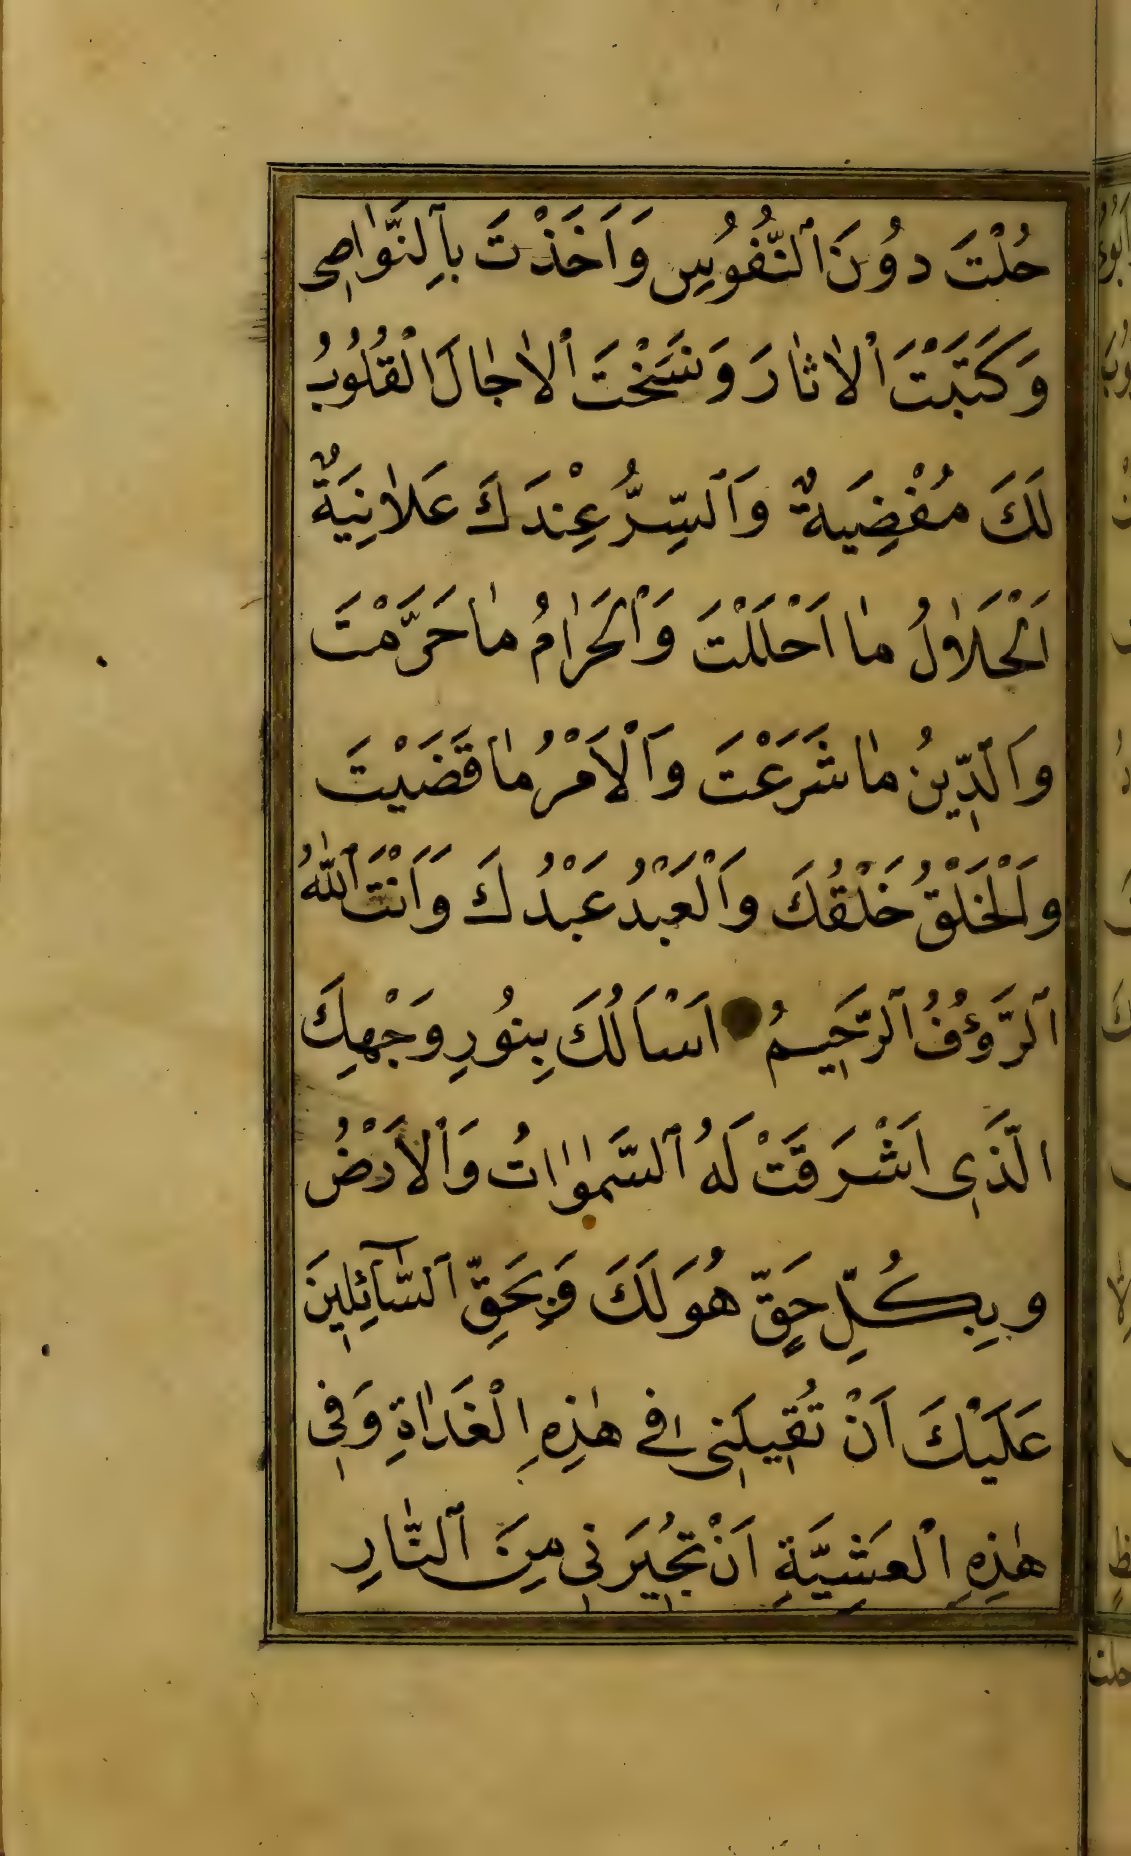 حُلْتَ دُونَ ٱلنُّفُوسِ وَاَخَذْتَ بِٱلنَّوٰاصِى
وَكَتَبْتَ ٱلاٰثٰارَ وَنَسَخْتَ ٱلاٰجٰالَ الْقُلُوبُ
لَكَ مُفْضِيَةٌ وَٱلسِّرُّ عِنْدَكَ عَلاٰنِيَةٌ
اَلْحَلاٰلُ مٰا اَحْلَلْتَ وَٱلْحَرٰامُ مٰا حَرَّمْتَ
وَٱلدِّينُ مٰا شَرَعْتَ وَٱلْاَمْرُ مٰا قَضَيْتَ
وَٱلْخَلْقُ خَلْقُكَ وَٱلْعَبْدُ عَبْدُكَ وَاَنْتَ ٱللّٰهُ
ٱلرَّؤُفُ ٱلرَّحِيمُ اَسْاَلُكَ بِنُورِ وَجْهِكَ
الَّذِى اَشْرَقَتْ لَهُ ٱلسَّمٰوٰاتُ وَٱلْاَرْضُ
وَبِكُلِّ حَقٍّ هُوَ لَكَ وَبِحَقِّ ٱلسّٰآئِلِينَ
عَلَيْكَ اَنْ تُقِيلَنِى فِى هٰذِهِ الْغَدٰاةِ وَفِى
هٰذِهِ الْعَشِيَّةِ اَنْ تُجِيرَنِى مِنَ ٱلنّٰارِ